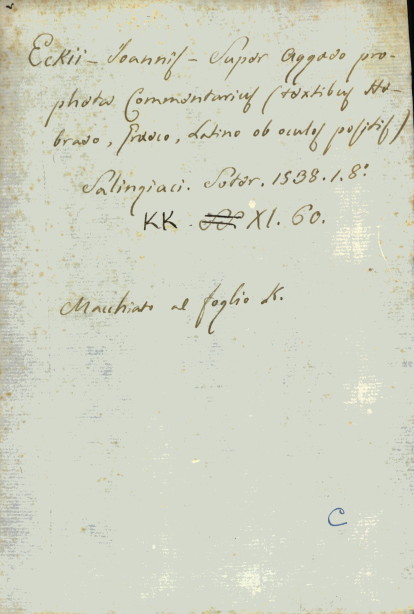 Eckii - Joannis - Super Aggaeo pro-
pheta Commentarius (textibus He-
braeo, Graeco, Latino ob oculos positis)
Salingiaci. Soter. 1538. 1. 8.º
KK. XI. 60.
Macchiato al foglio K.
C